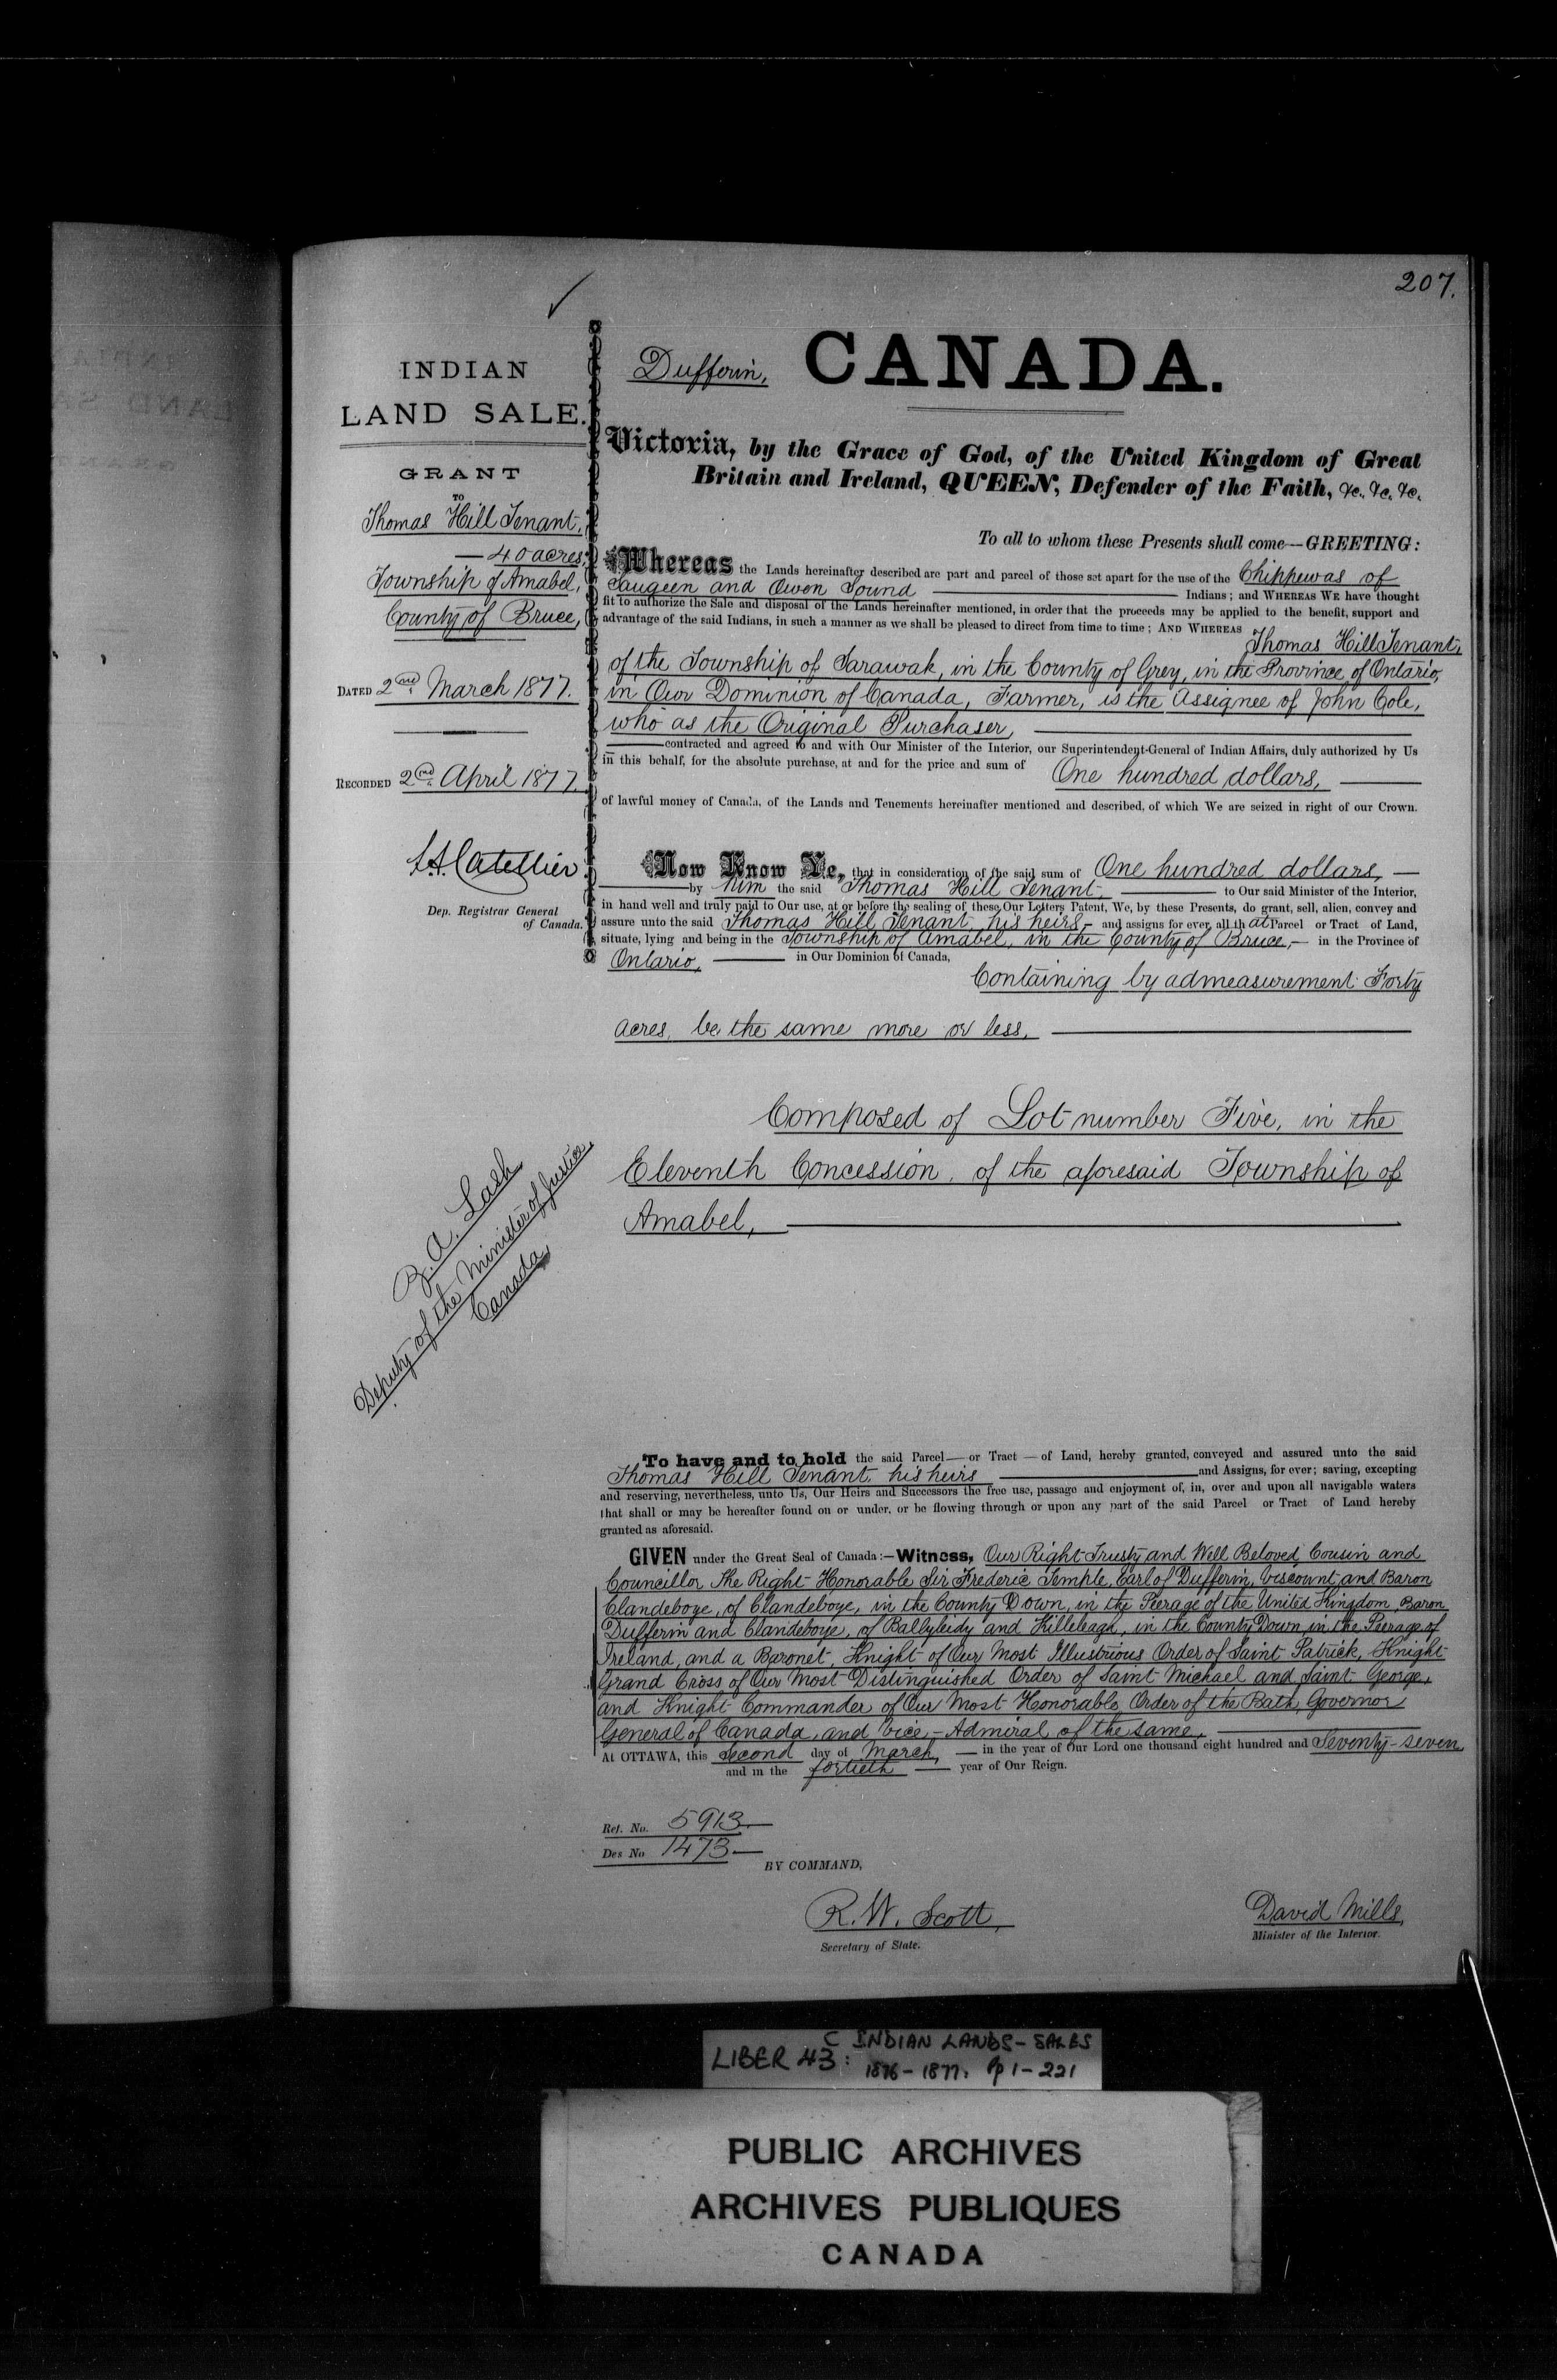 207.
INDIAN
LAND SALE.
GRANT
TO
Thomas Hill Tenant,
— 40 acres,
Township of Amabel,
County of Bruce,
DATED 2nd March 1877.
RECORDED 2nd April 1877.
Dep. Registrar General
of Canada.
Z. A. Lash
Deputy of the Minister of Justice
Canada
Dufferin,
CANADA.
Victoria, by the Grace of God, of the United Kingdom of Great
Britain and Ireland, QUEEN, Defender of the Faith, &c., &c., &c.
To all to whom these Presents shall come—GREETING:
Whereas the Lands hereinafter described are part and parcel of those set apart for the use of the Chippewas of
Saugeen and Owen Sound — Indians; and WHEREAS WE have thought
fit to authorize the Sale and disposal of the Lands hereinafter mentioned, in order that the proceeds may be applied to the benefit, support and
advantage of the said Indians, in such a manner as we shall be pleased to direct from time to time; AND WHEREAS Thomas Hill Tenant,
of the Township of Sarawak, in the County of Grey, in the Province of Ontario,
in Our Dominion of Canada, Farmer, is the Assignee of John Cole,
who as the Original Purchaser,
contracted and agreed to and with Our Minister of the Interior, our Superintendent-General of Indian Affairs, duly authorized by Us
in this behalf, for the absolute purchase, at and for the price and sum of One hundred dollars, —
of lawful money of Canada, of the Lands and Tenements hereinafter mentioned and described, of which We are seized in right of our Crown.
Now Know Ye, that in consideration of the said sum of One hundred dollars, —
by him the said Thomas Hill Tenant, — to Our said Minister of the Interior,
in hand well and truly paid to Our use, at or before the sealing of these Our Letters Patent, We, by these Presents, do grant, sell, alien, convey and
assure unto the said Thomas Hill Tenant, his heirs — and assigns for ever, all that Parcel or Tract of Land,
situate, lying and being in the Township of Amabel, in the County of Bruce, — in the Province of
Ontario, — in Our Dominion of Canada,
Containing by admeasurement Forty
acres, be the same more or less,
Composed of Lot number Five, in the
Eleventh Concession, of the aforesaid Township of
Amabel,
To have and to hold the said Parcel — or Tract — of Land, hereby granted, conveyed and assured unto the said
Thomas Hill Tenant, his heirs — and Assigns, for ever; saving, excepting
and reserving, nevertheless, unto Us, Our Heirs and Successors the free use, passage and enjoyment of, in, over and upon all navigable waters
that shall or may be hereafter found on or under, or be flowing through or upon any part of the said Parcel or Tract of Land hereby
granted as aforesaid.
GIVEN under the Great Seal of Canada:—Witness, Our Right Trusty and Well Beloved Cousin and
Councillor, The Right Honorable Sir Frederic Temple, Earl of Dufferin, Viscount and Baron
Clandeboye, of Clandeboye, in the County Down, in the Peerage of the United Kingdom, Baron
Dufferin and Clandeboye, of Ballyleidy and Killeleagh, in the County Down, in the Peerage of
Ireland, and a Baronet, Knight of Our Most Illustrious Order of Saint Patrick, Knight
Grand Cross of Our Most Distinguished Order of Saint Michael and Saint George,
and Knight Commander of Our Most Honorable Order of the Bath, Governor
General of Canada, and Vice-Admiral of the same,
At OTTAWA, this Second day of March, — in the year of Our Lord one thousand eight hundred and Seventy-seven
and in the fortieth — year of Our Reign.
Ref. No. 5913
Des No 1473
BY COMMAND,
R. W. Scott,
Secretary of State.
David Mills,
Minister of the Interior.
LIBER 43: C INDIAN LANDS - SALES
1876 - 1877. Pp 1 - 221
PUBLIC ARCHIVES
ARCHIVES PUBLIQUES
CANADA